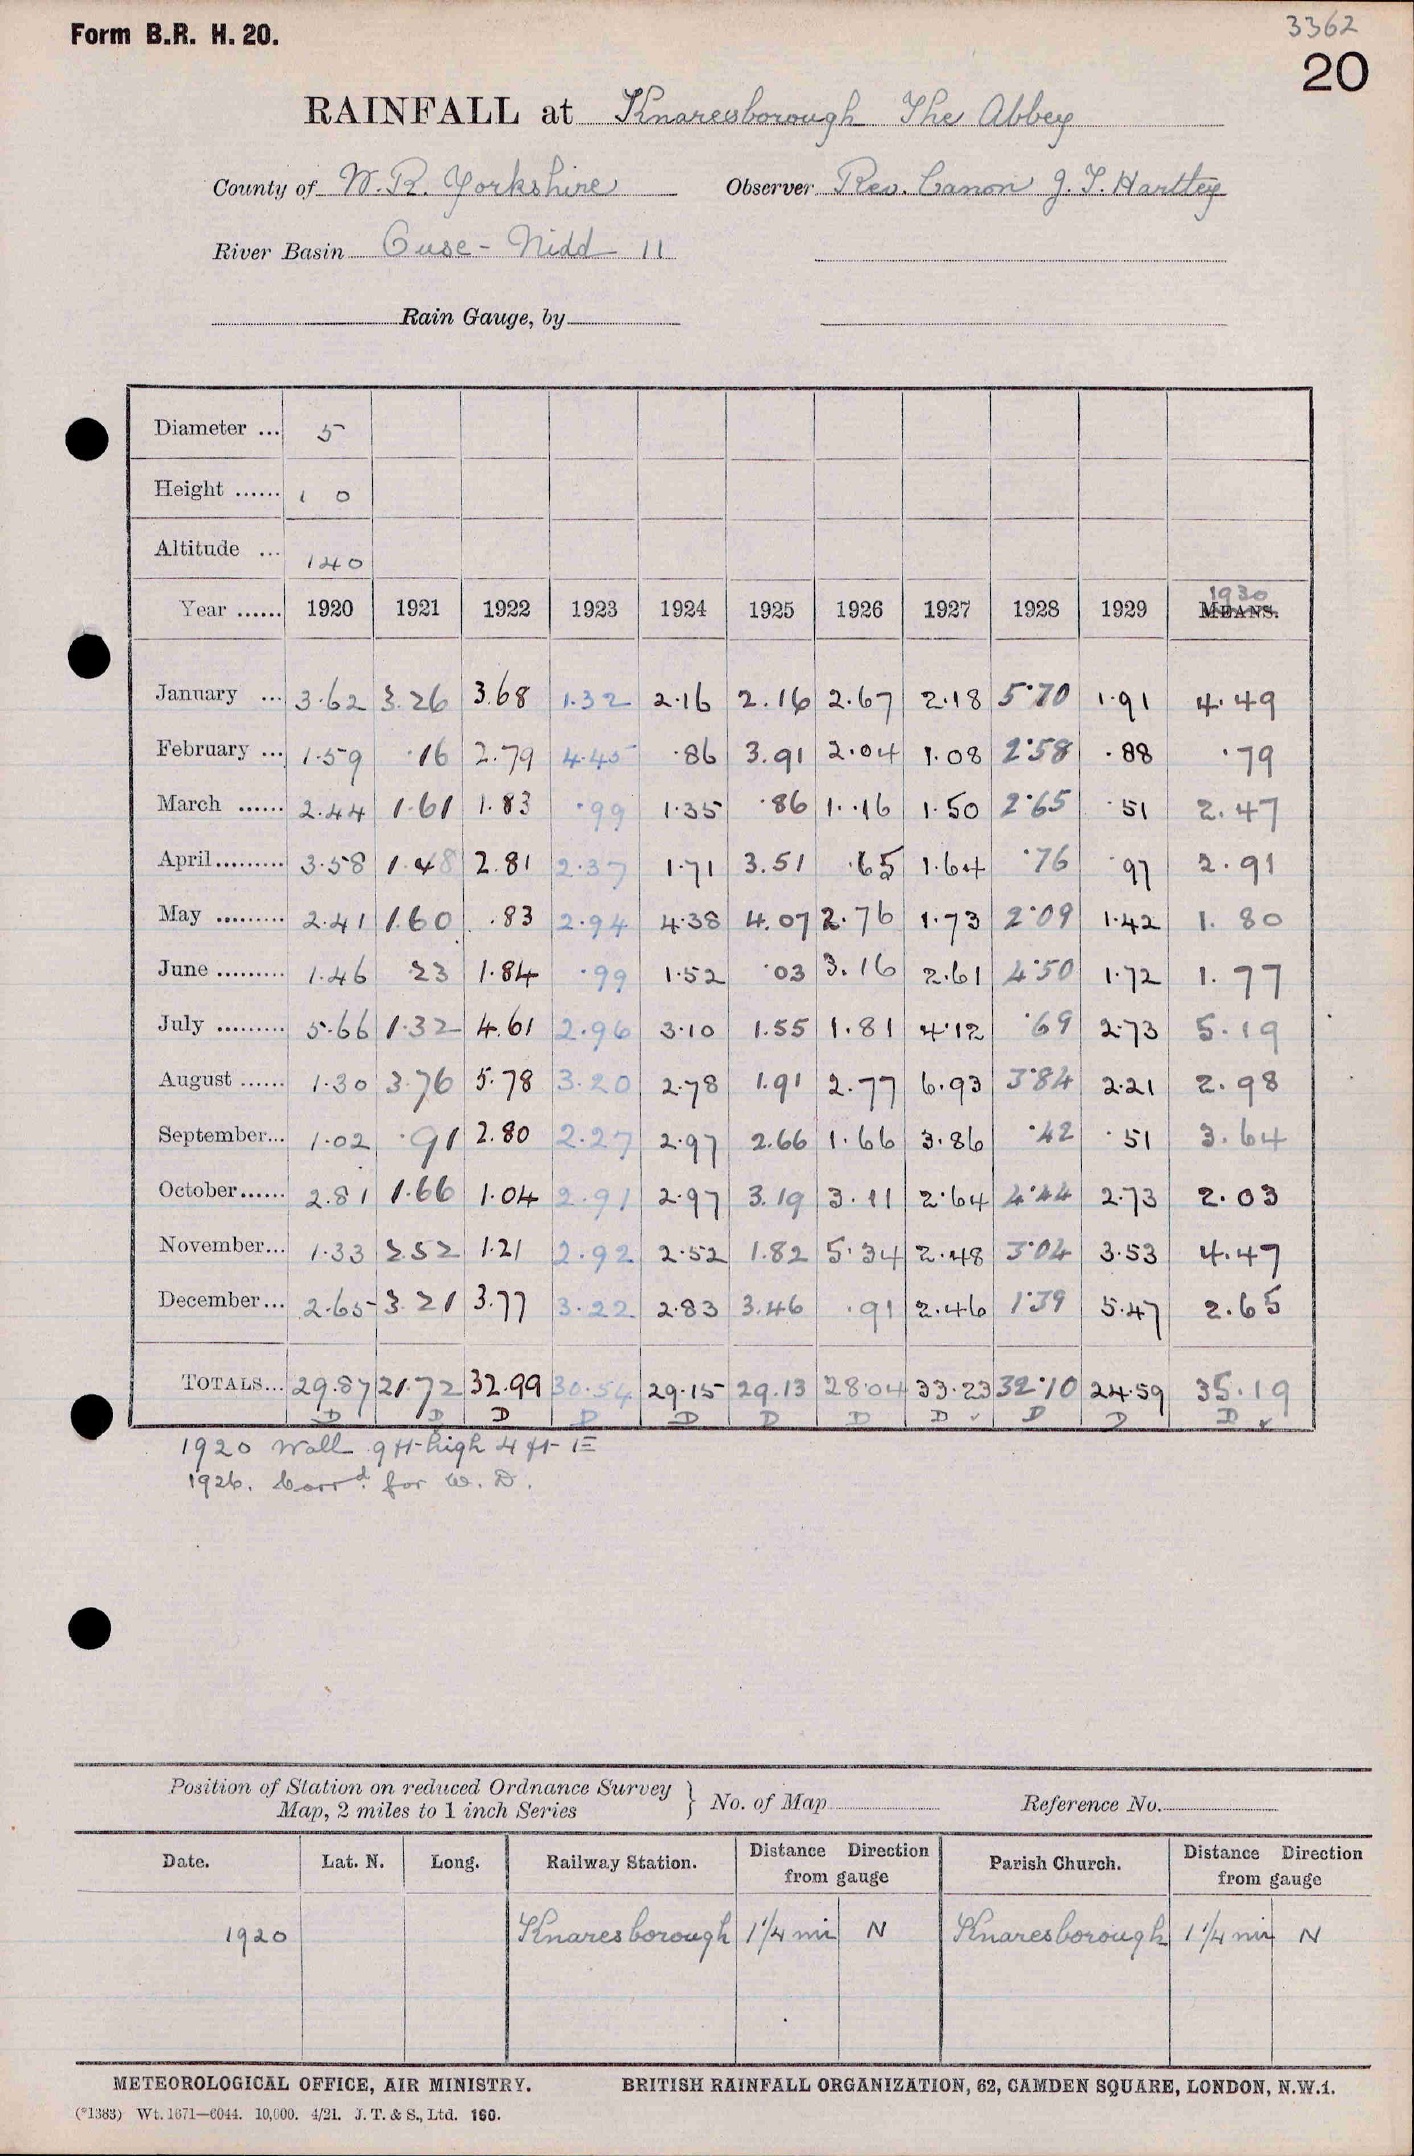 Form B.R. H. 20.
3362
20
RAINFALL at Knaresborough The Abbey
County of W. R. Yorkshire Observer Rev. Canon J. T. Hartley
River Basin Ouse - Nidd 11
Rain Gauge, by
Diameter ... 5
Height ...... 1 0
Altitude ... 140
Year ...... 1920 1921 1922 1923 1924 1925 1926 1927 1928 1929 1930 MEANS.
January ... 3.62 3.26 3.68 1.32 2.16 2.16 2.67 2.18 5.70 1.91 4.49
February ... 1.59 .16 2.79 4.45 .86 3.91 2.04 1.08 2.58 .88 .79
March ...... 2.44 1.61 1.83 .99 1.35 .86 1.16 1.50 2.65 .51 2.47
April ......... 3.58 1.48 2.81 2.37 1.71 3.51 .65 1.64 .76 .97 2.91
May ......... 2.41 1.60 .83 2.94 4.38 4.07 2.76 1.73 2.09 1.42 1.80
June ......... 1.46 .23 1.84 .99 1.52 .03 3.16 2.61 4.50 1.72 1.77
July ......... 5.66 1.32 4.61 2.96 3.10 1.55 1.81 4.12 .69 2.73 5.19
August ...... 1.30 3.76 5.78 3.20 2.78 1.91 2.77 6.93 3.84 2.21 2.98
September... 1.02 .91 2.80 2.27 2.97 2.66 1.66 3.86 .42 .51 3.64
October...... 2.81 1.66 1.04 2.91 2.97 3.19 3.11 2.64 4.44 2.73 2.03
November... 1.33 2.52 1.21 2.92 2.52 1.82 5.34 2.48 3.04 3.53 4.47
December... 2.65 3.21 3.77 3.22 2.83 3.46 .91 2.46 1.39 5.47 2.65
TOTALS... 29.87 21.72 32.99 30.54 29.15 29.13 28.04 33.23 32.10 24.59 35.19
D D D D D D D D ✓ D D D ✓
1920 Wall 9 ft high 4 ft E
1926. Corrd. for W. D.
Position of Station on reduced Ordnance Survey
Map, 2 miles to 1 inch Series } No. of Map Reference No.
Date. Lat. N. Long. Railway Station. Distance Direction from gauge Parish Church. Distance Direction from gauge
1920 Knaresborough 1 1/4 mi N Knaresborough 1 1/4 mi N
METEOROLOGICAL OFFICE, AIR MINISTRY. BRITISH RAINFALL ORGANIZATION, 62, CAMDEN SQUARE, LONDON, N.W.1.
(*1383) Wt. 1671—6044. 10,000. 4/21. J. T. & S., Ltd. 160.